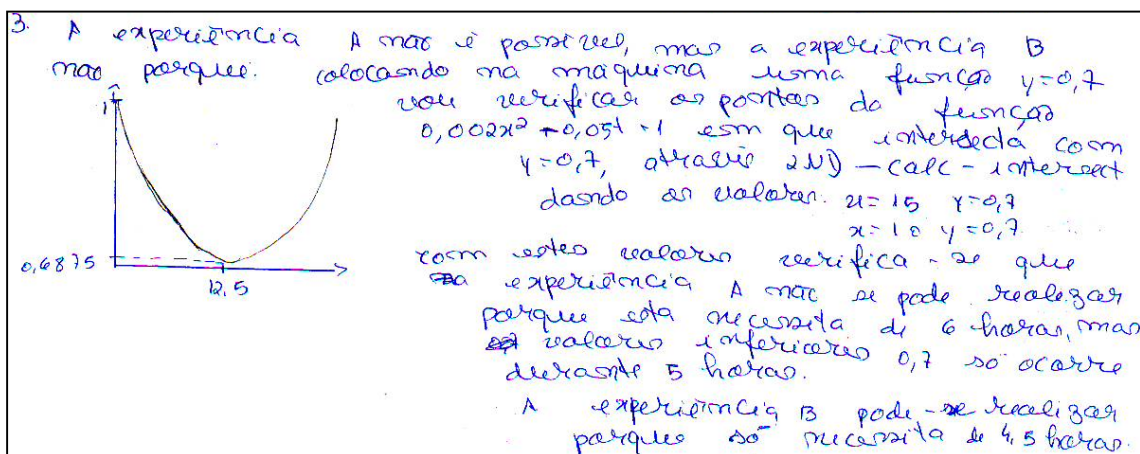 3. A experiência A não é possível, mas a experiência B
não porque. colocando na máquina uma função y=0,7
vou verificar os pontos da função
0,002x² - 0,05t + 1 em que intersectá com
y=0,7, através 2ND - calc - intersect
dando os valores. x=15 y=0,7
x=10 y=0,7
com estes valores verifica-se que
a experiência A não se pode realizar
porque esta necessita de 6 horas, mas
valores inferiores 0,7 só ocorre
durante 5 horas.
A experiência B pode-se realizar
porque só necessita de 4,5 horas.
1
0,6875
12,5